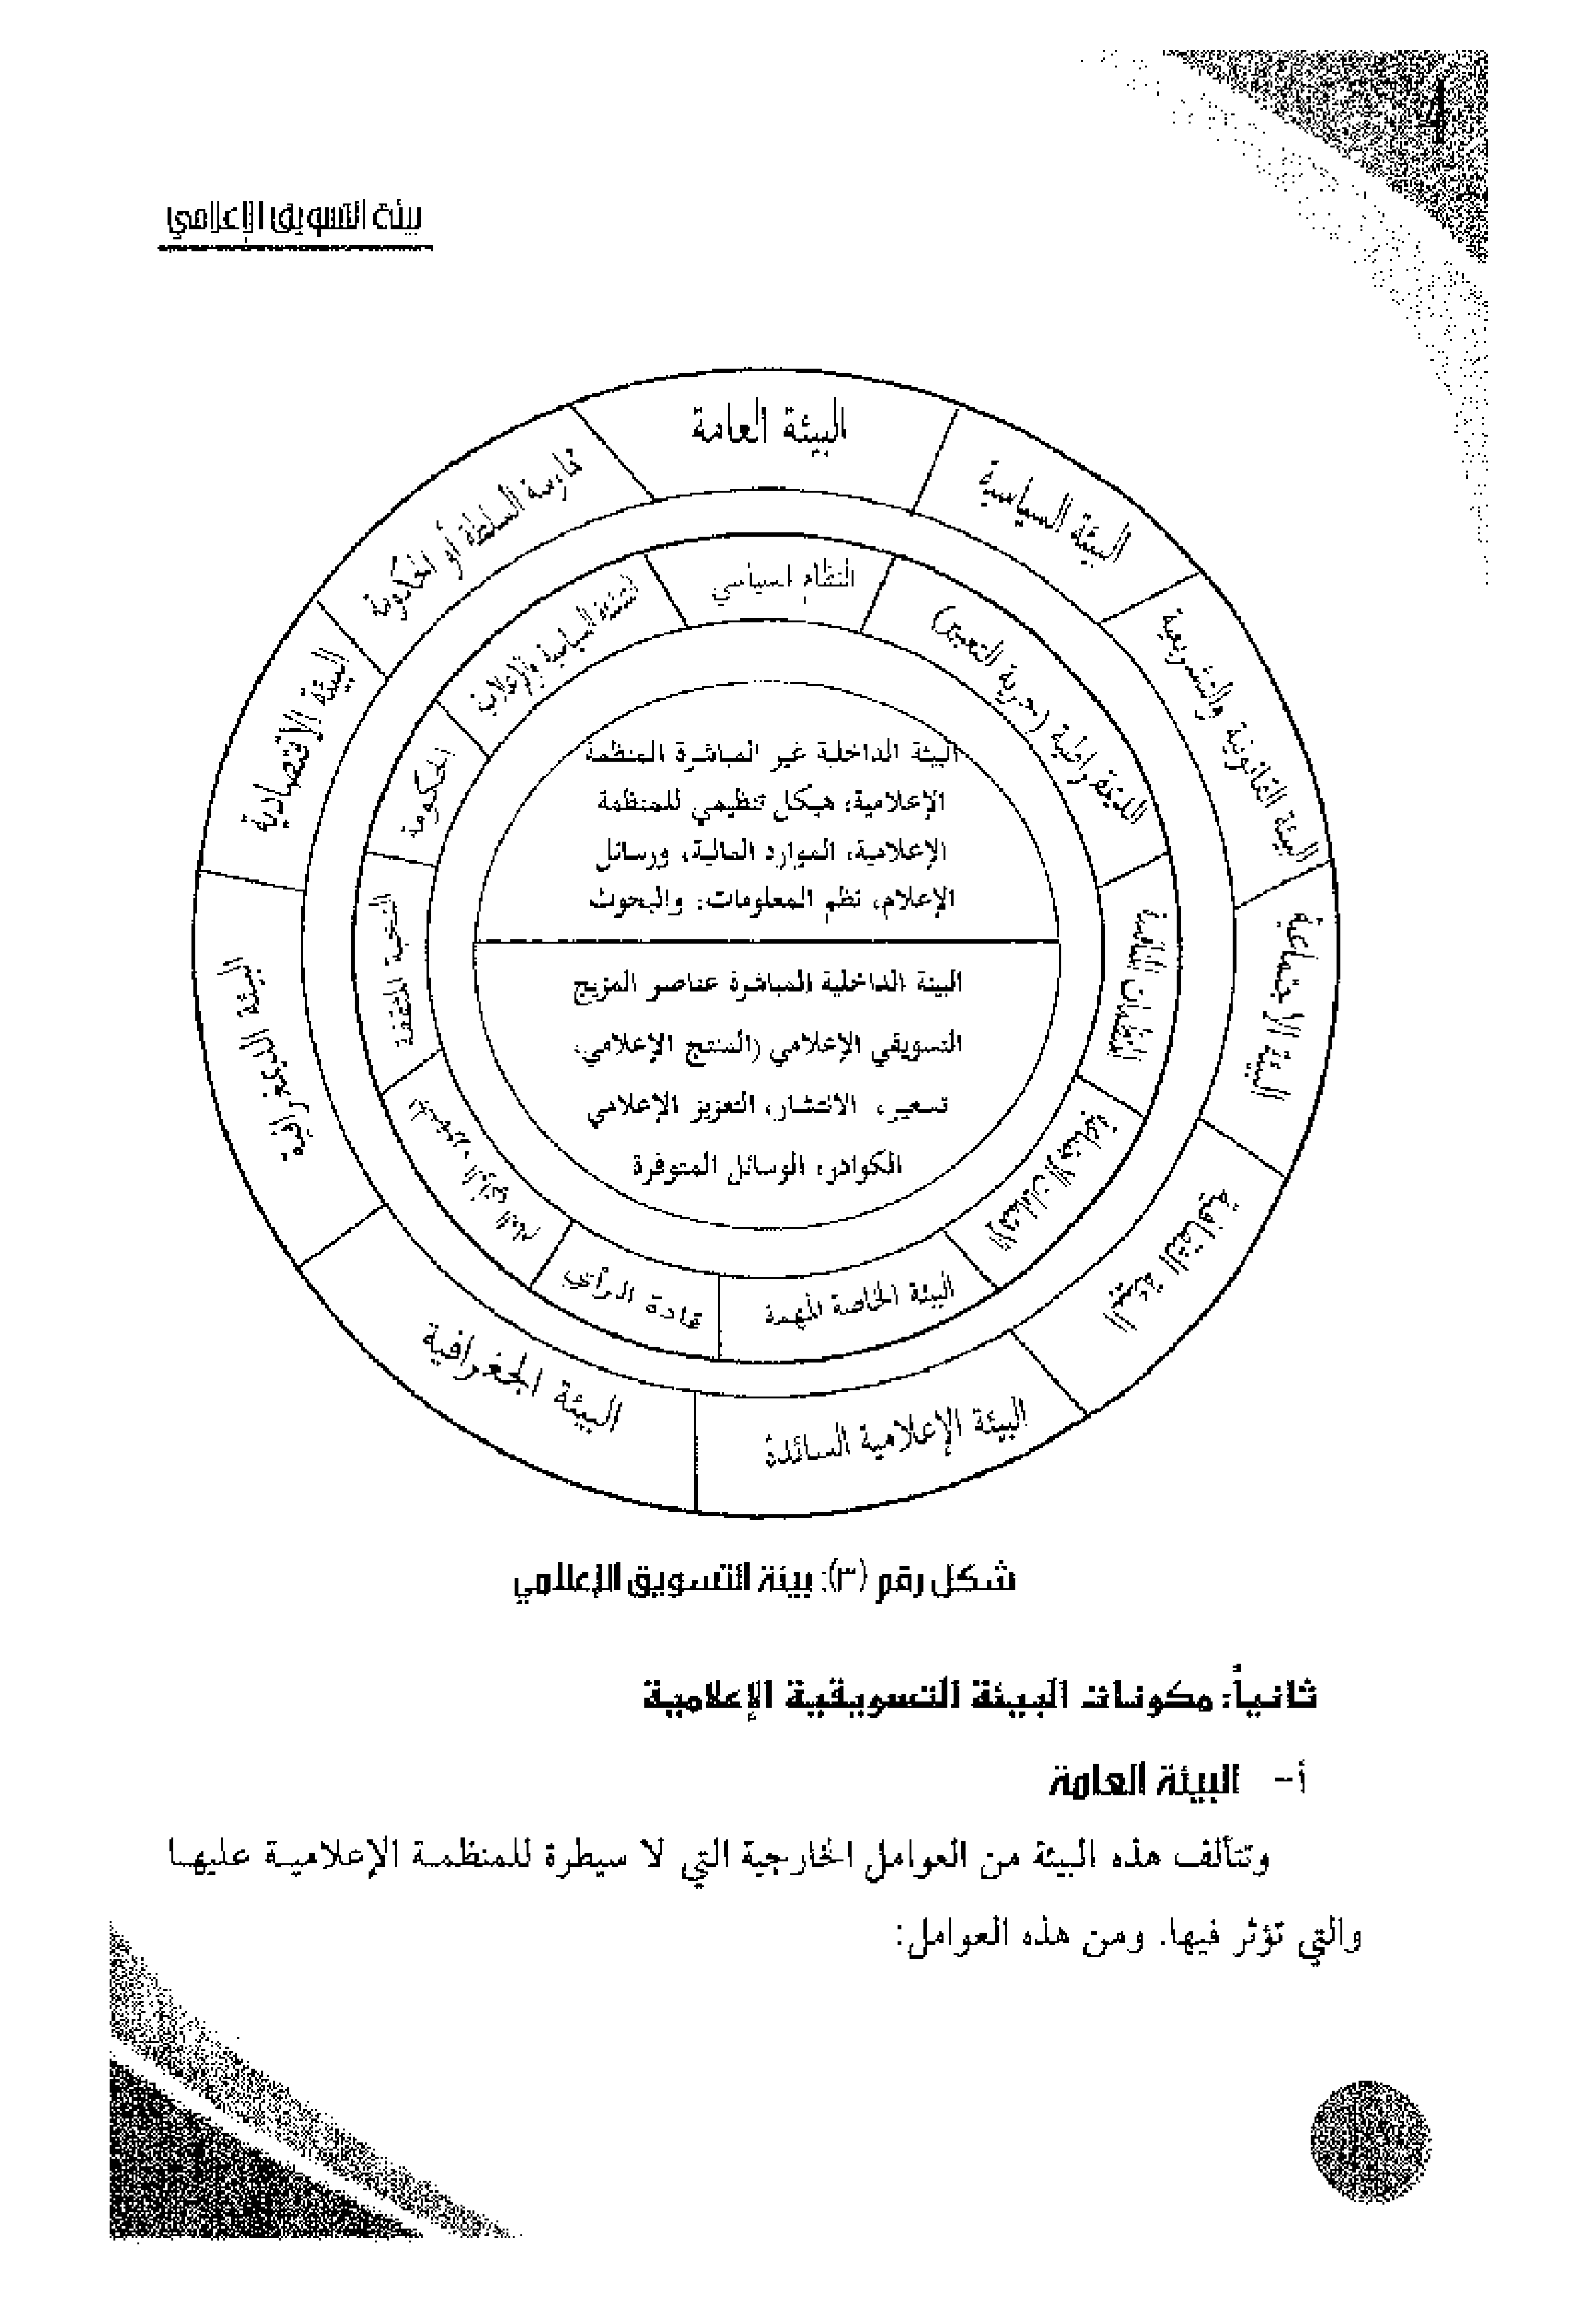 بيئة التسويق الإعلامي
البيئة العامة
البيئة السياسية
البيئة القانونية والتشريعية
البيئة الاجتماعية
البيئة الثقافية
البيئة الإعلامية السائدة
البيئة الجغرافية
البيئة الديمغرافية
البيئة الاقتصادية
السلطة أو الحكومة
النظام السياسي
الديمقراطية (حرية التعبير)
المنظمات المنافسة
البيئة الخاصة المهمة
قادة الرأي
النخبة المثقفة
الحكومة
السياسية والإعلان
البيئة الداخلية غير المباشرة المنظمة
الإعلامية، هيكل تنظيمي للمنظمة
الإعلامية، الموارد المالية، ورسائل
الإعلام، نظم المعلومات، والبحوث
البيئة الداخلية المباشرة عناصر المزيج
التسويقي الإعلامي (المنتج الإعلامي،
تسعير، الانتشار، التعزيز الإعلامي
الكوادر، الوسائل المتوفرة
شكل رقم (٣): بيئة التسويق الإعلامي
ثانياً: مكونات البيئة التسويقية الإعلامية
أ- البيئة العامة
وتتألف هذه البيئة من العوامل الخارجية التي لا سيطرة للمنظمة الإعلامية عليها
والتي تؤثر فيها. ومن هذه العوامل: